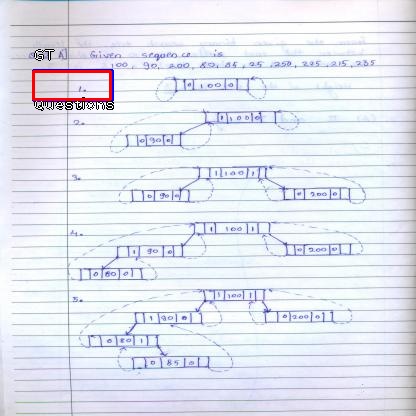 GT A] Given sequence is
100, 90, 200, 80, 85, 25, 250, 225, 215, 235
1. 0 100 0
Questions
2. 1 100 0
0 90 0
3. 1 100 1
0 90 0 0 200 0
4. 1 100 1
1 90 0 0 200 0
0 80 0
5. 1 100 1
1 90 0 0 200 0
0 80 1
0 85 0